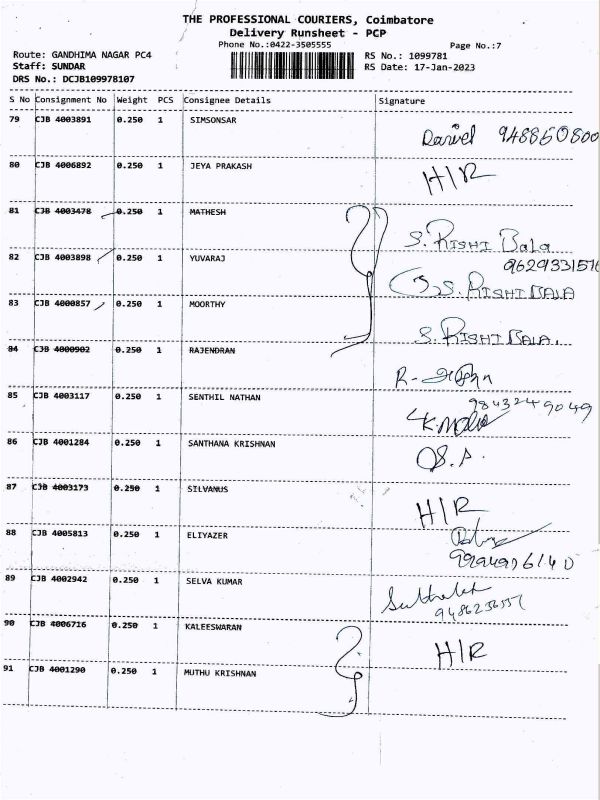 THE PROFESSIONAL COURIERS, Coimbatore
Delivery Runsheet - PCP
Phone No.:0422-3505555
Page No.:7
Route: GANDHIMA NAGAR PC4
RS No.: 1099781
Staff: SUNDAR
RS Date: 17-Jan-2023
DRS No.: DCJB109978107
S No Consignment No Weight PCS Consignee Details Signature
79 CJB 4003891 0.250 1 SIMSONSAR
Daniel 948850800
80 CJB 4006892 0.250 1 JEYA PRAKASH
H/R
81 CJB 4003478 0.250 1 MATHESH
S. RISHI Bala
82 CJB 4003898 0.250 1 YUVARAJ
S. RISHI BALA
83 CJB 4000857 0.250 1 MOORTHY
S. RISHI BALA.
84 CJB 4000902 0.250 1 RAJENDRAN
85 CJB 4003117 0.250 1 SENTHIL NATHAN
9843249049
86 CJB 4001284 0.250 1 SANTHANA KRISHNAN
87 CJB 4003173 0.250 1 SILVANUS
H/R
88 CJB 4005813 0.250 1 ELIYAZER
89 CJB 4002942 0.250 1 SELVA KUMAR
90 CJB 4006716 0.250 1 KALEESWARAN
H/R
91 CJB 4001290 0.250 1 MUTHU KRISHNAN